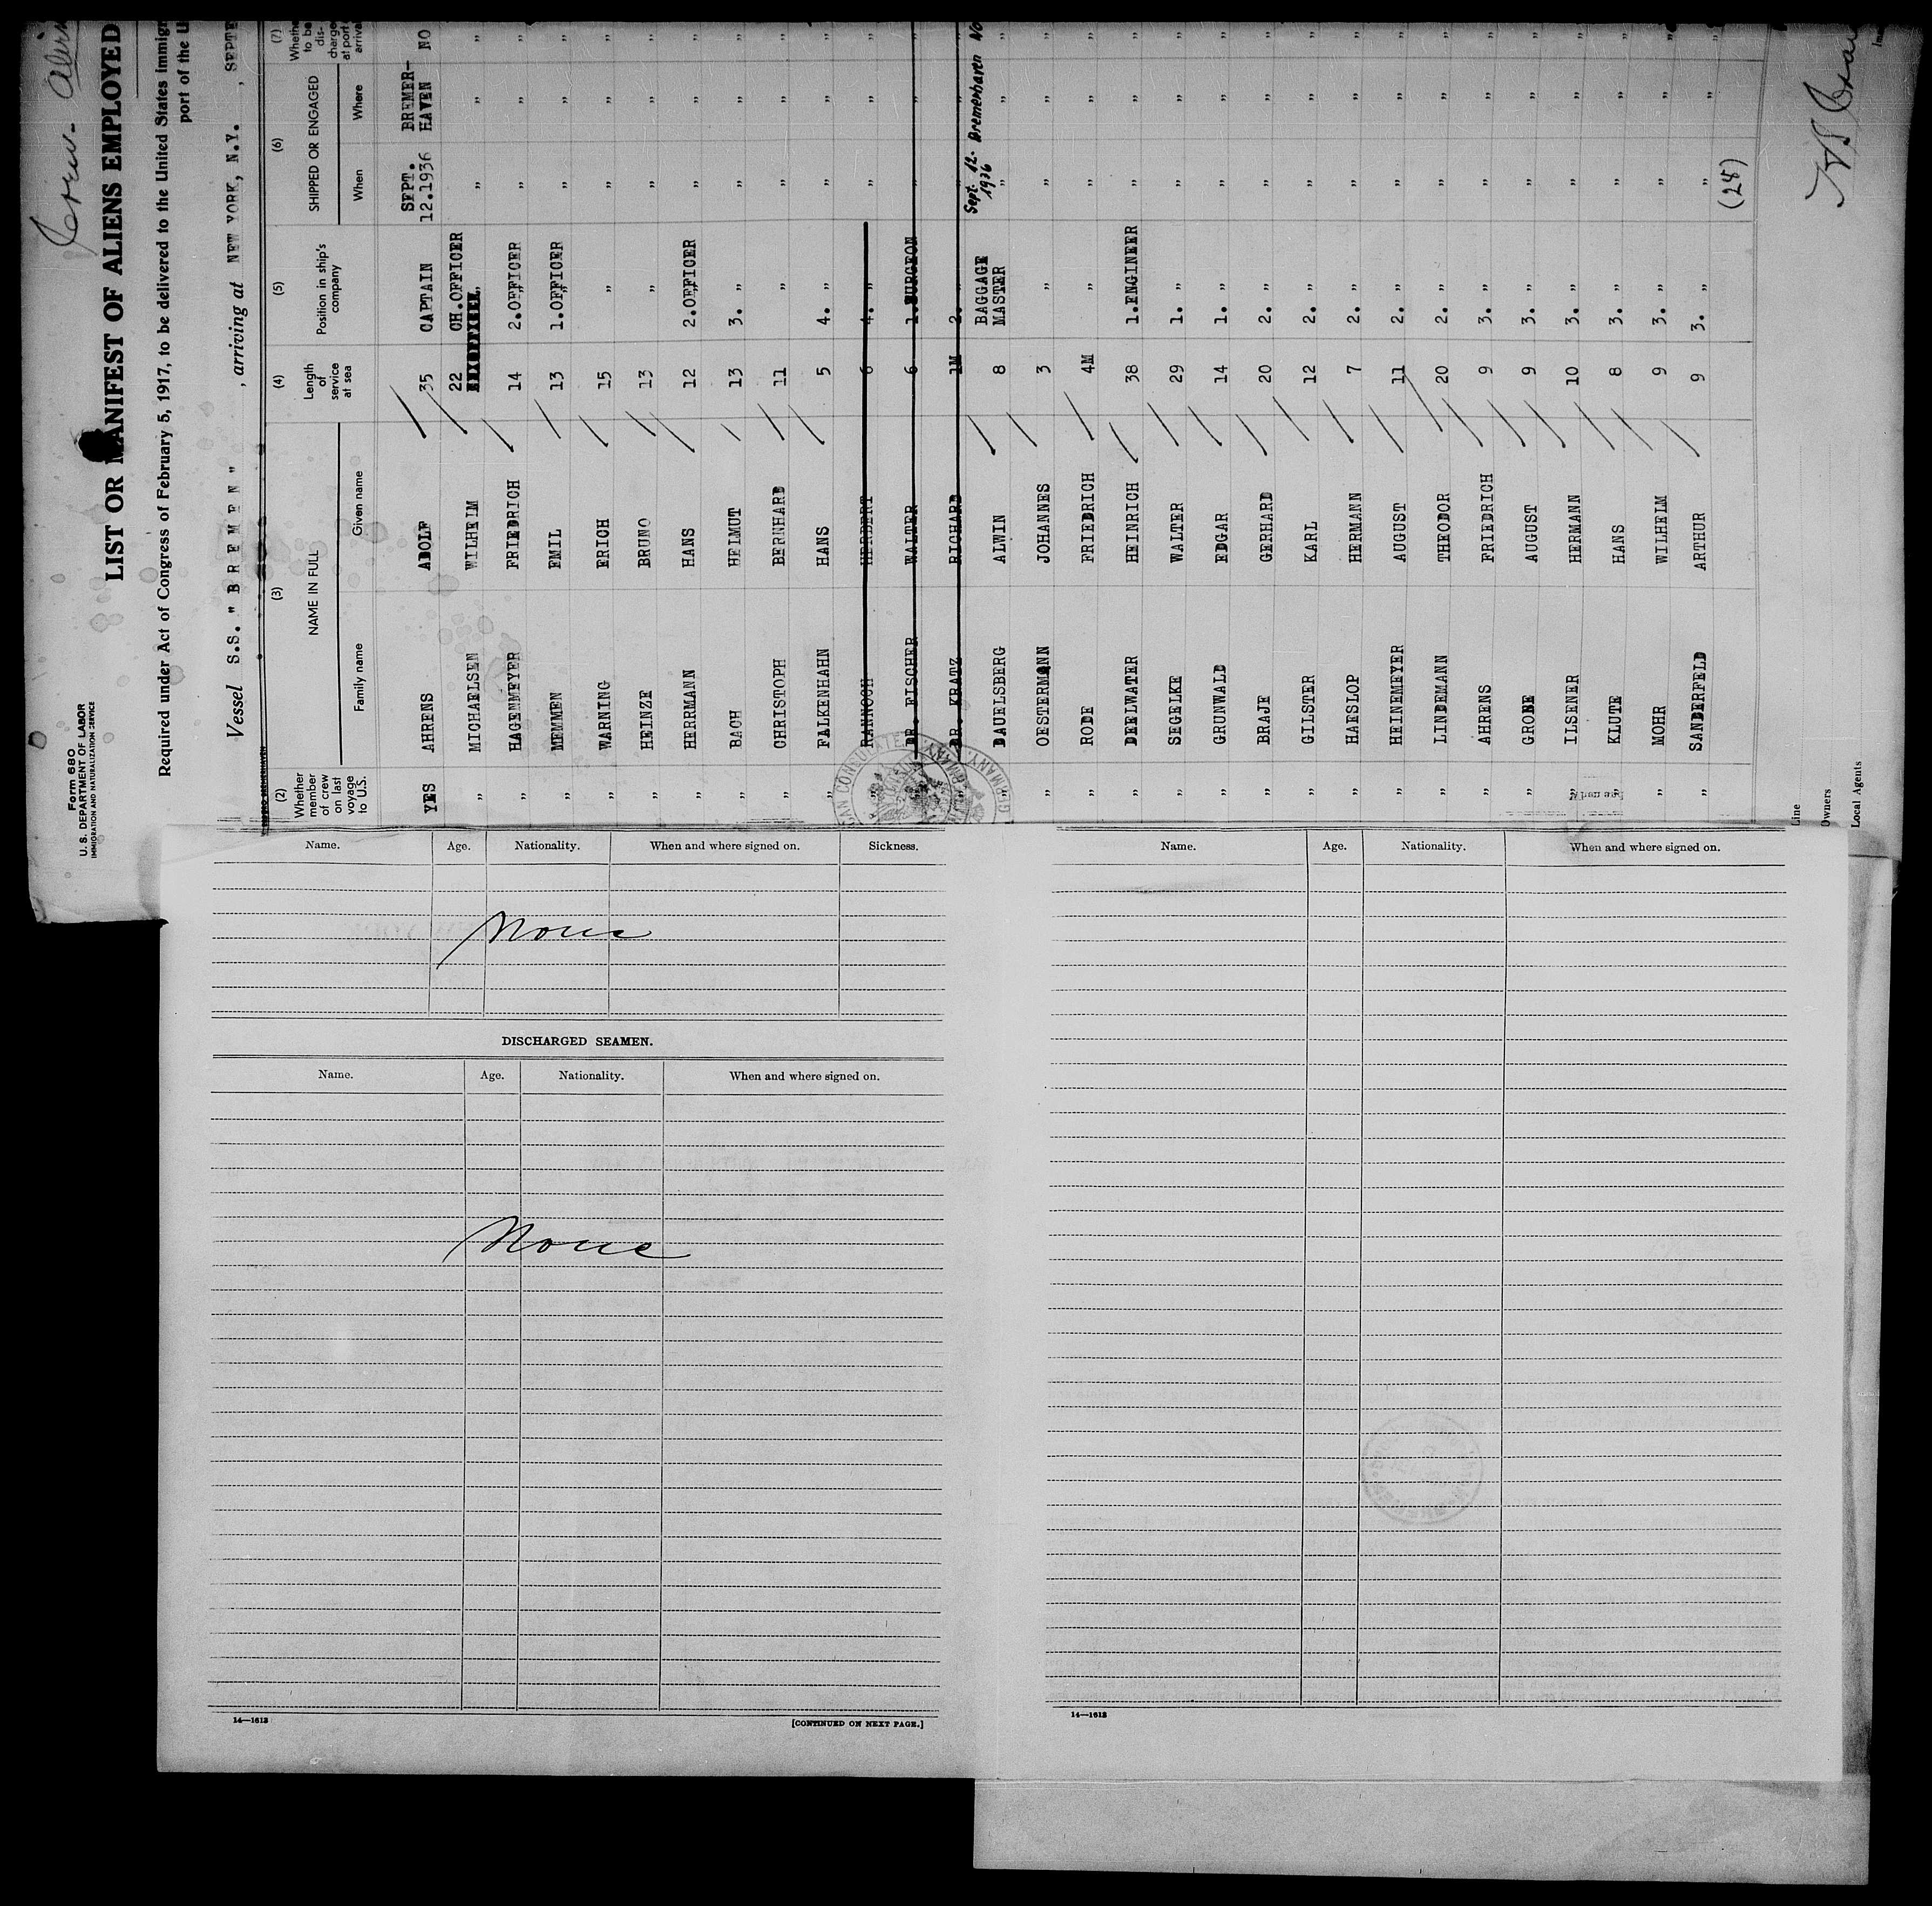 Form 680
U. S. DEPARTMENT OF LABOR
IMMIGRATION AND NATURALIZATION SERVICE
Crew-
LIST OR MANIFEST OF ALIENS EMPLOYED
Required under Act of Congress of February 5, 1917, to be delivered to the United States
port of the
Vessel S.S. "BREMEN" , arriving at NEW YORK, N.Y. ,
(2) (3) (4) (5) (6) (7)
Whether member of crew on last voyage to U.S. NAME IN FULL Length of service at sea Position in ship's company SHIPPED OR ENGAGED to be dis-
Family name Given name When Where
YES AHRENS ADOLF 35 CAPTAIN SEPT. 12.1936 BREMER-HAVEN NO
" MICHAELSEN WILHELM 22 CH.OFFICER " " "
" HAGENMEYER FRIEDRICH 14 2.OFFICER " " "
" MEMMEN EMIL 13 1.OFFICER " " "
" WARNING ERICH 15 " " " "
" HEINZE BRUNO 13 " " " "
" HERRMANN HANS 12 2.OFFICER " " "
" BACH HELMUT 13 3. " " " "
" CHRISTOPH BERNHARD 11 " " " "
" FALKENHAHN HANS 5 4. " " " "
" RANNOCH HERBERT 6 4. " " " "
" DR. FISCHER WALTER 6 1.SURGEON " " "
DR. KRATZ RICHARD 1M 2. " " " "
" DAUELSBERG ALWIN 8 BAGGAGE MASTER Sept. 12. 1936 Bremerhaven No
" OESTERMANN JOHANNES 3 " " " "
" RODE FRIEDRICH 4M " " " "
" DEELWATER HEINRICH 38 1.ENGINEER " " "
" SEGELKE WALTER 29 1. " " " "
" GRUNWALD EDGAR 14 1. " " " "
" BRAJE GERHARD 20 2. " " " "
" GILSTER KARL 12 2. " " " "
" HAESLOP HERMANN 7 2. " " " "
" HEINEMEYER AUGUST 11 2. " " " "
" LINDEMANN THEODOR 20 2. " " " "
" AHRENS FRIEDRICH 9 3. " " " "
" GROBE AUGUST 9 3. " " " "
" ILSENER HERMANN 10 3. " " " "
" KLUTE HANS 8 3. " " " "
" MOHR WILHELM 9 3. " " " "
" SANDERFELD ARTHUR 9 3. " " " "
(28)
Line
Owners
Local Agents
Name. Age. Nationality. When and where signed on. Sickness.
None
DISCHARGED SEAMEN.
Name. Age. Nationality. When and where signed on.
None
14—1613 [CONTINUED ON NEXT PAGE.]
Name. Age. Nationality. When and where signed on.
14—1613